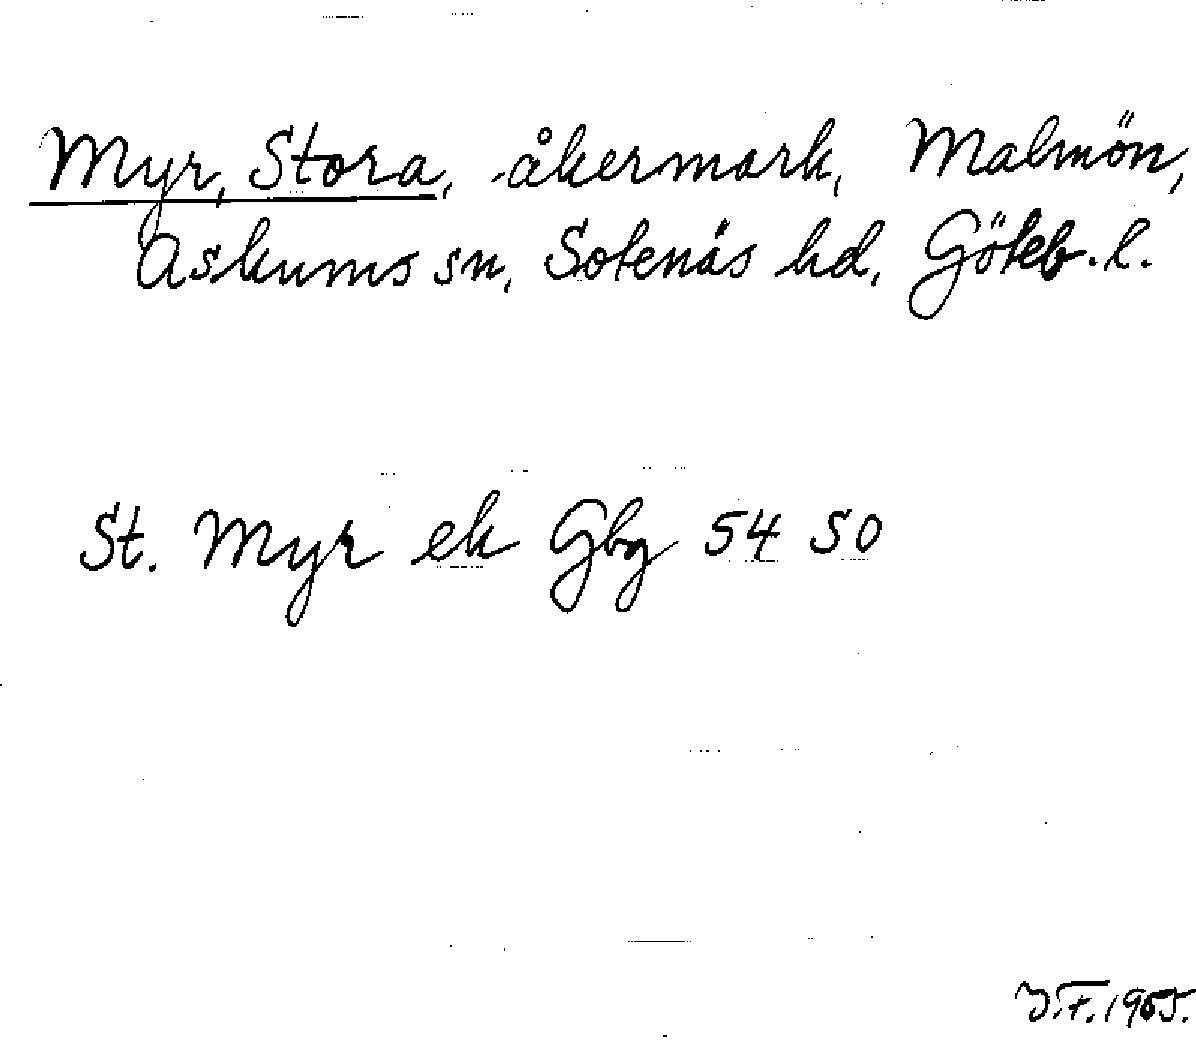 Myr, Stora, åkermark, Malmön,
Askums sn, Sotenäs hd, Göteb. l.
St. Myr ek Gbg 54 SO